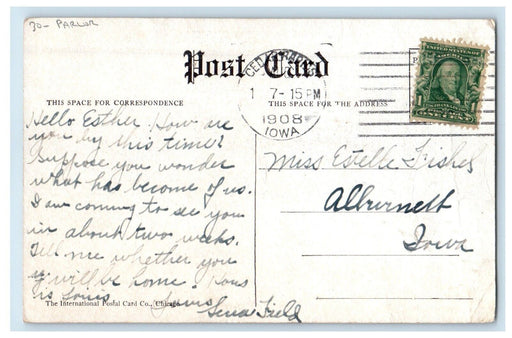 70- PARLOR
Post Card
CEDAR RAPIDS
1 7-15 PM
1908
IOWA
THIS SPACE FOR CORRESPONDENCE
THIS SPACE FOR THE ADDRESS
Hello Esther. How are
you by this time?
Suppose you wonder
what has become of us.
I am coming to see you
in about two weeks.
Tell me whether you
will be home.
is
Field
Miss Estelle Fisher
Alburnett
Iowa
The International Postal Card Co., Chicago